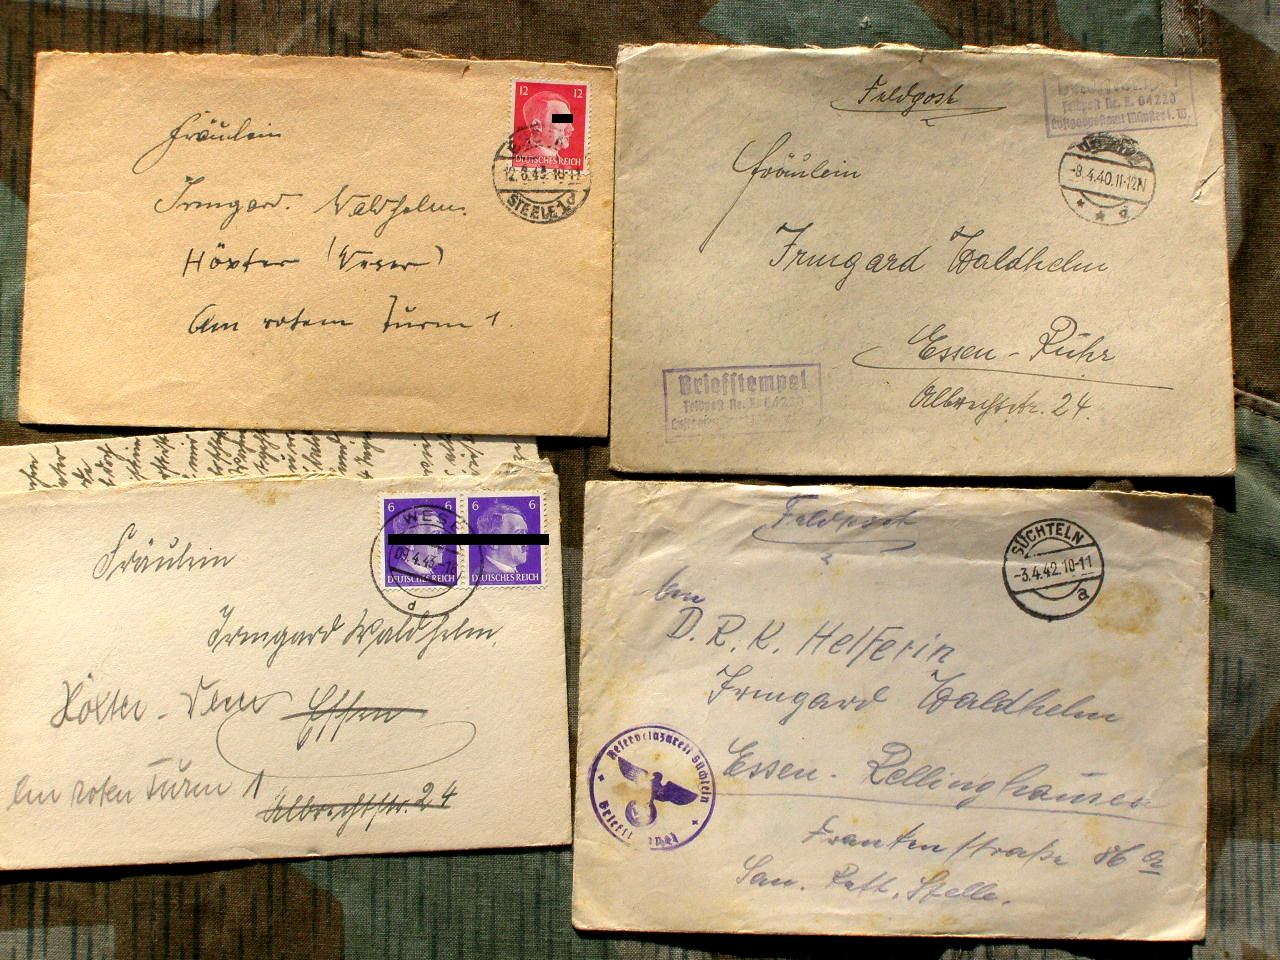 12 12
DEUTSCHES REICH
12.6.43.10-11
STEELE 1
d
Fräulein
Irmgard. Waldhelm.
Höxter (Weser)
Am rotem Turm 1.
Feldpost
Feldpost Nr. L 04220
Luftgaupostamt Münster i. W.
-8.4.40.11-12N
* * d
Fräulein
Irmgard Waldhelm
Essen-Ruhr
Albrechtstr. 24.
Briefstempel
Feldpost Nr.
6 6 6 6
WES
09.4.43
DEUTSCHES REICH DEUTSCHES REICH
d
Fräulein
Irmgard Waldhelm,
Höxter-Weser Essen
Am roten Turm 1
Albrechtstr. 24
Feldpost
SÜCHTELN
-3.4.42.10-11
a
An
D.R.K. Helferin
Irmgard Waldhelm
Essen-Rellinghausen
Frankenstraße
San. Rett. Stelle.
Reservelazarett Süchteln